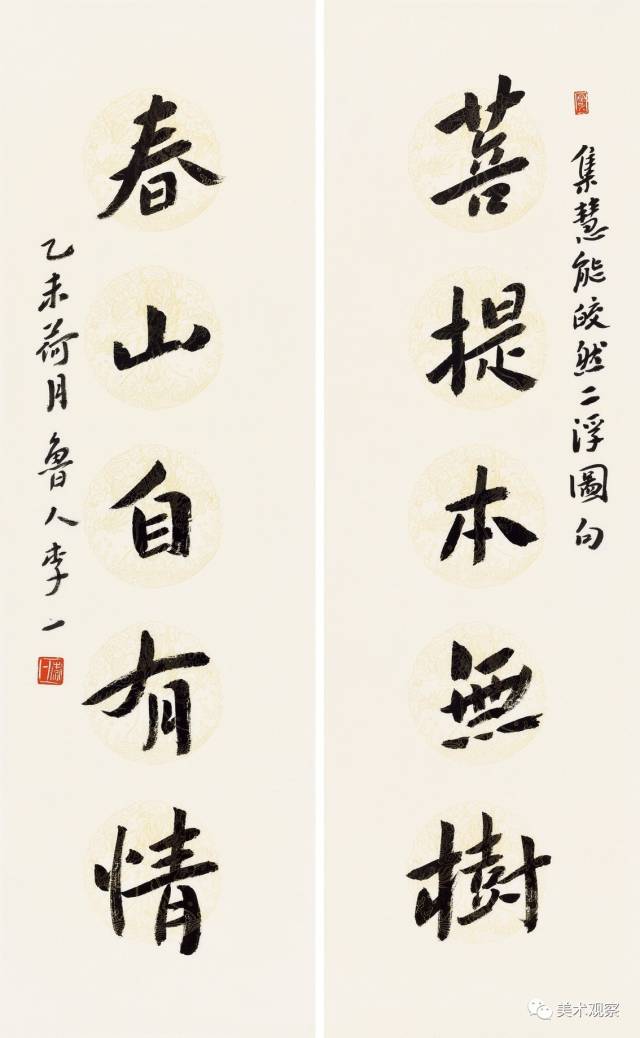 集慧能皎然二浮圖句
菩提本無樹
春山自有情
乙未荷月魯人李一
美术观察